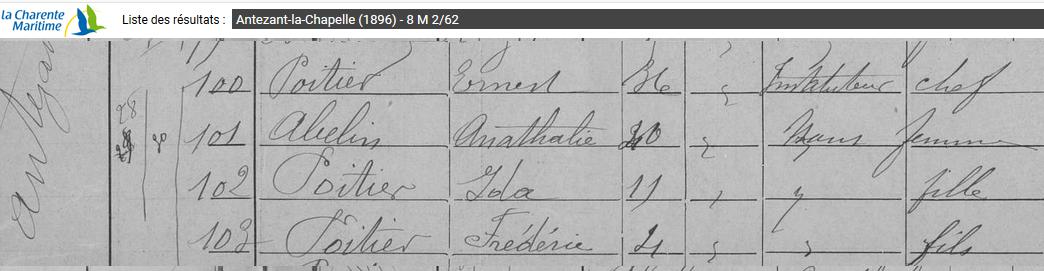 la Charente
Maritime
Liste des résultats : Antezant-la-Chapelle (1896) - 8 M 2/62
100 Poitier Ernest 36 " Instituteur chef
28 30 101 Abelin Anathalie 30 " Sans femme
102 Poitier Ida 11 " " fille
103 Poitier Frédéric 4 " " fils